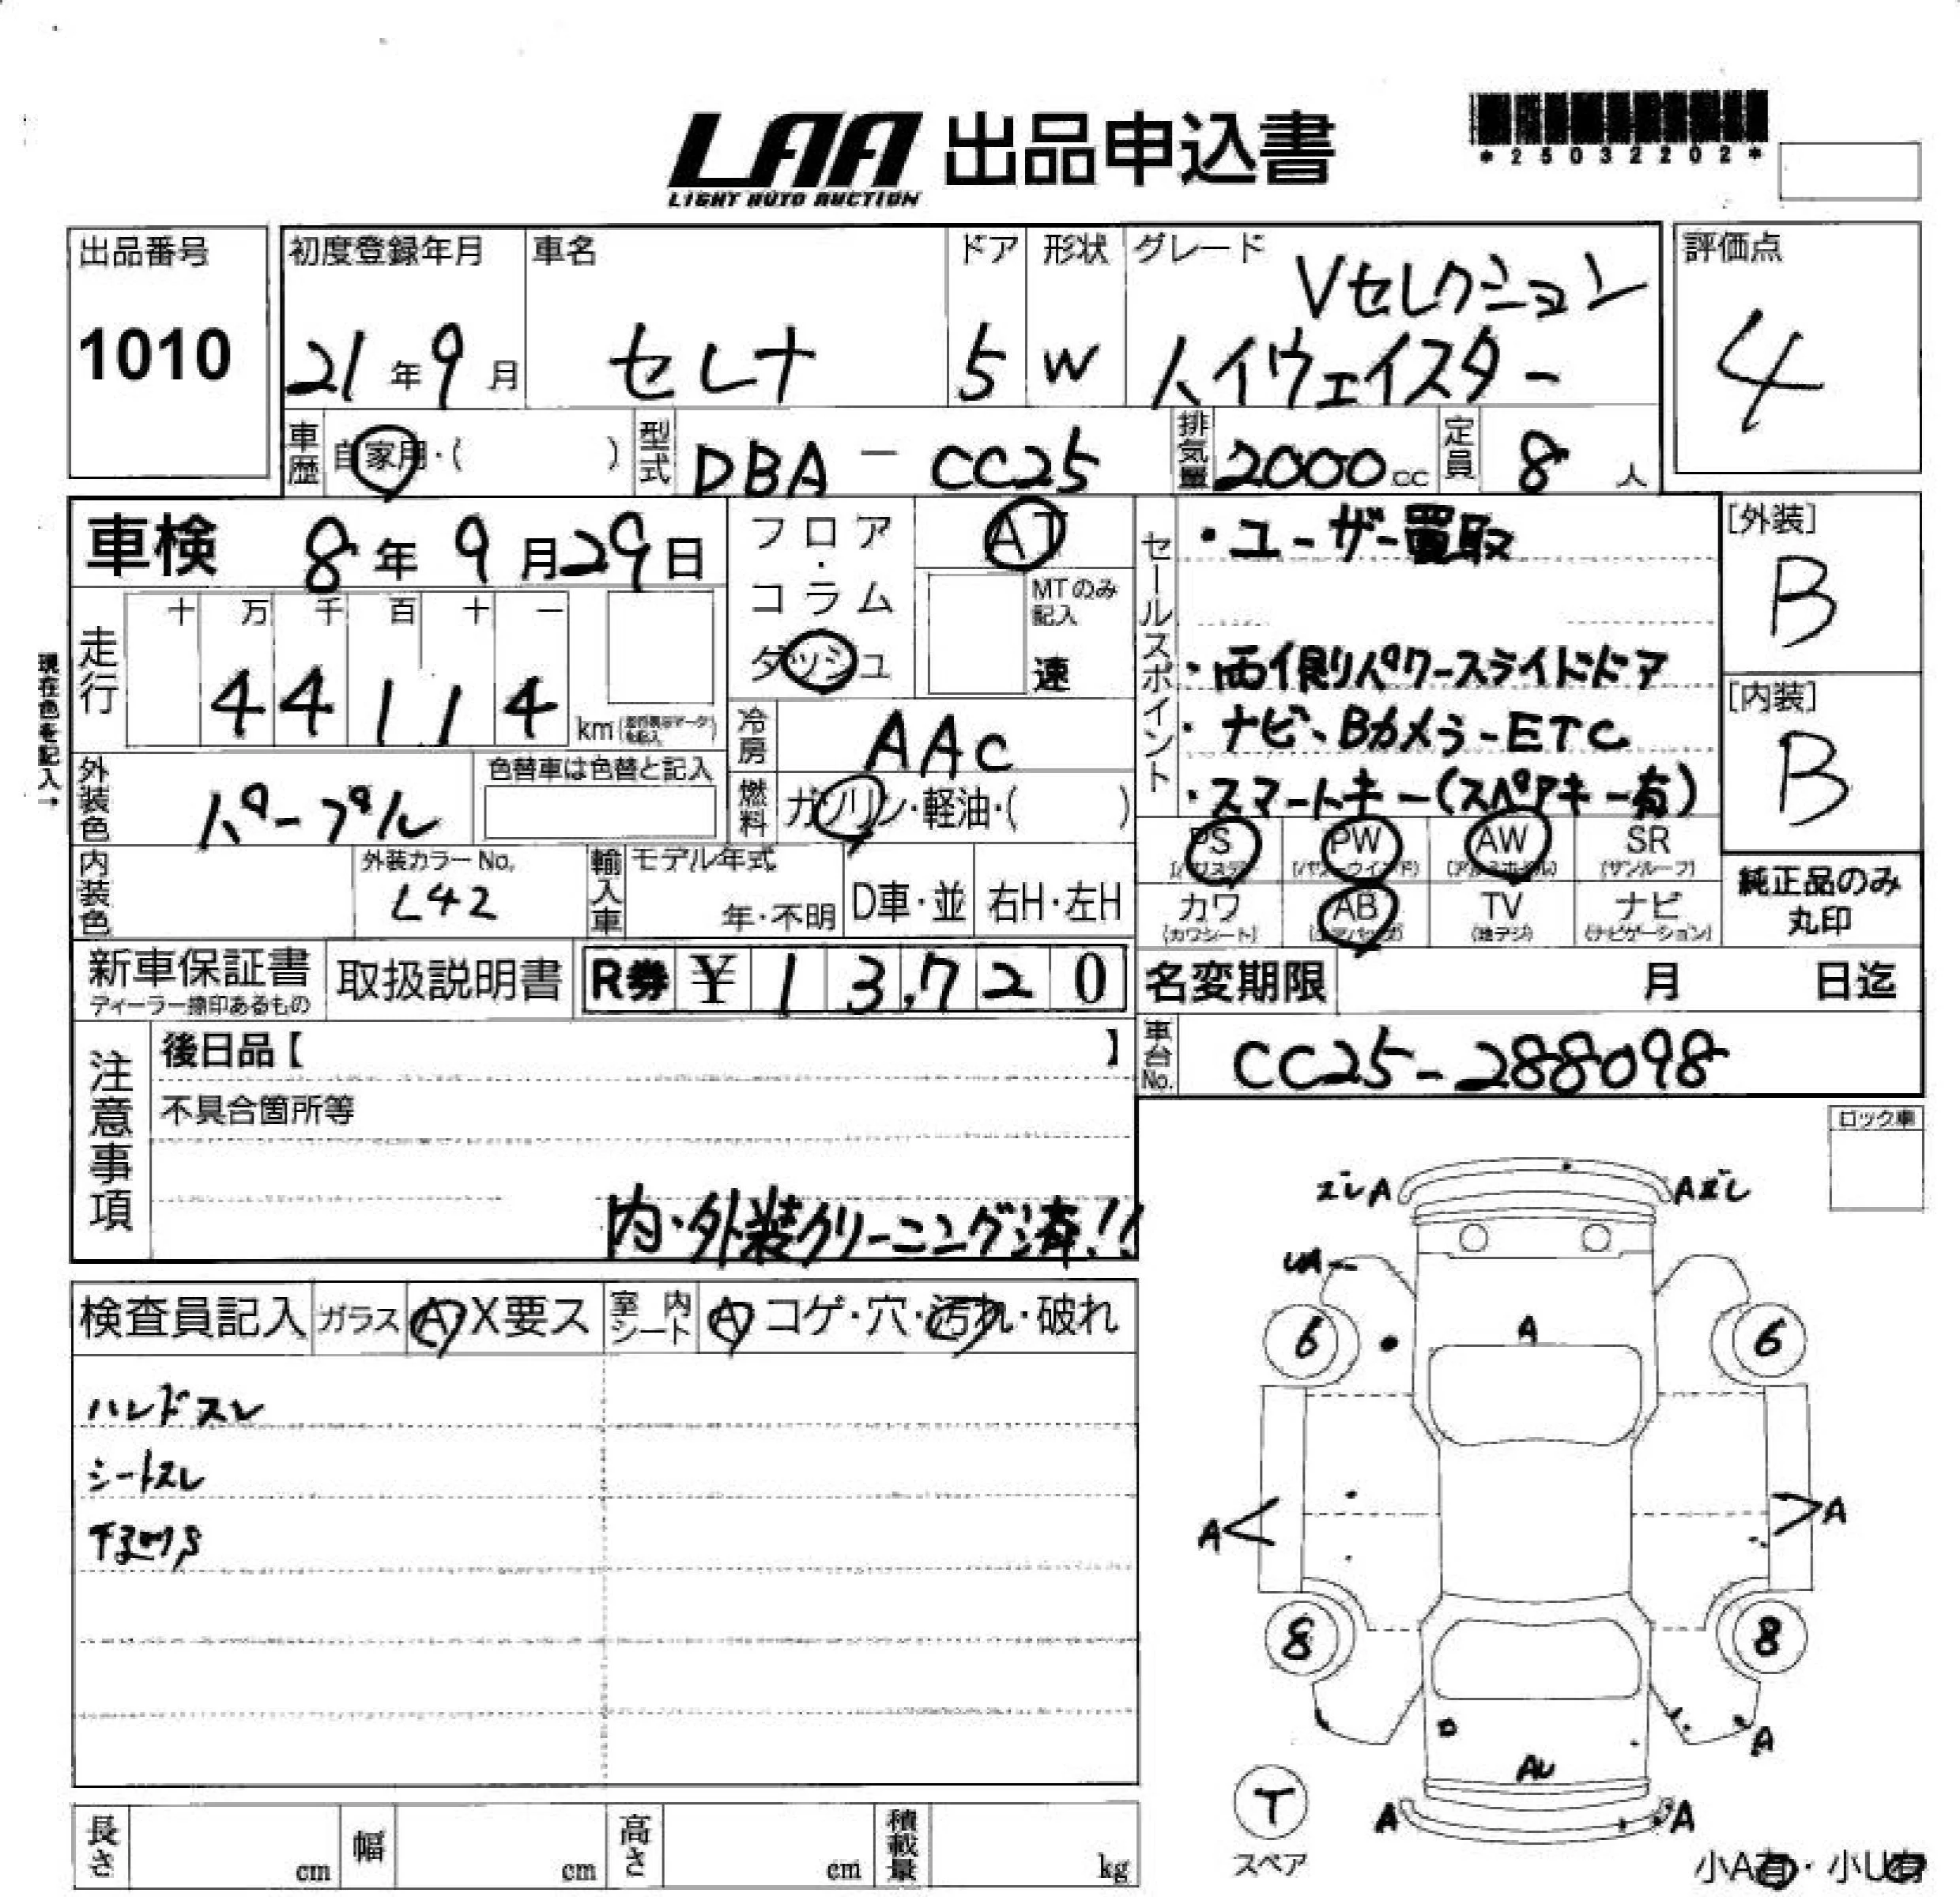 LAA 出品申込書
LIGHT AUTO AUCTION
*25032202*
出品番号
1010
初度登録年月
21年9月
車名
セレナ
ドア
5
形状
W
グレード
Vセレクション
ハイウェイスター
評価点
4
車歴
自家用・( )
型式
DBA-CC25
排気量
2000cc
定員
8人
車検 8年9月29日
フロア・コラム
ダッシュ
AT
MTのみ記入
速
走行
十 万 千 百 十 一
44114
km
現在色を記入→
冷房
AAC
燃料
ガソリン・軽油・( )
外装色
パープル
色替車は色替と記入
内装色
外装カラーNo.
L42
輸入車
モデル年式
年・不明
D車・並
右H・左H
セールスポイント
・ユーザー買取
・両側パワースライドドア
・ナビ、Bカメラ-ETC
・スマートキー(スペアキー有)
[外装]
B
[内装]
B
PS
(パワステ)
PW
(パワーウインド)
AW
(アルミホイル)
SR
(サンルーフ)
カワ
(カワシート)
AB
(エアバッグ)
TV
(地デジ)
ナビ
(ナビゲーション)
純正品のみ
丸印
新車保証書
ディーラー捺印あるもの
取扱説明書
R券 ¥13,720
名変期限 月 日迄
車台No.
CC25-288098
注意事項
後日品【 】
不具合箇所等
内・外装クリーニング済!!
ロック車
検査員記入
ガラス
A X要ス
室内シート
A コゲ・穴・汚れ・破れ
ハンドスレ
シートスレ
ズレA
Aズレ
UA
A
6
6
A
A
8
8
A
AU
A
A
T
スペア
小A有・小U有
長さ cm
幅 cm
高さ cm
積載量 kg